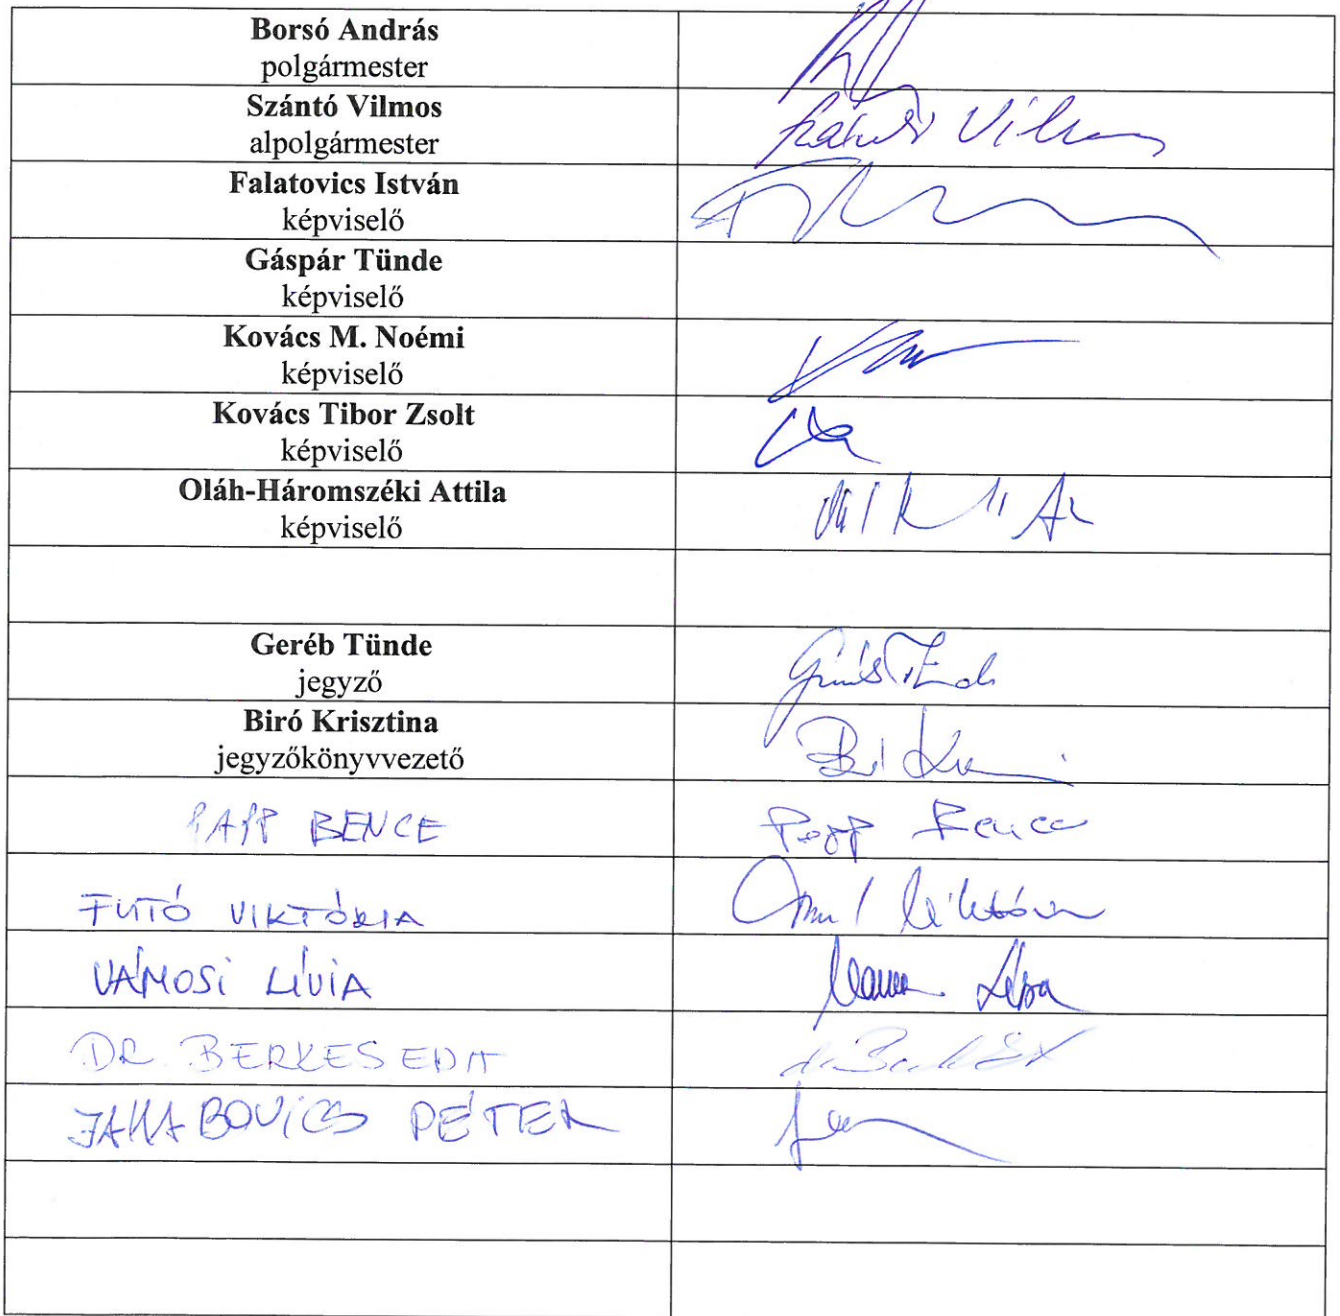 Borsó András
polgármester
Szántó Vilmos
alpolgármester
Szántó Vilmos
Falatovics István
képviselő
Gáspár Tünde
képviselő
Kovács M. Noémi
képviselő
Kovács Tibor Zsolt
képviselő
Oláh-Háromszéki Attila
képviselő
Geréb Tünde
jegyző
Biró Krisztina
jegyzőkönyvvezető
PAPP BENCE Papp Bence
FUTÓ VIKTÓRIA Viktória
VÁMOSI LÍVIA
DR. BERKES EDIT
JAKABOVICS PÉTER